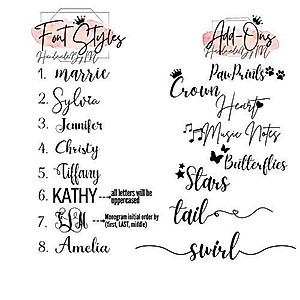 Font Styles
HandmadeByHM
1. marrie
2. Sylvia
3. Jennifer
4. Christy
5. Tiffany
6. KATHY
all letters will be
uppercased
7.
Monogram initial order by
(first, LAST, middle)
8. Amelia
Add-Ons
HandmadeByHM
PawPrints
Crown
Heart
Music Notes
Butterflies
Stars
tail
swirl